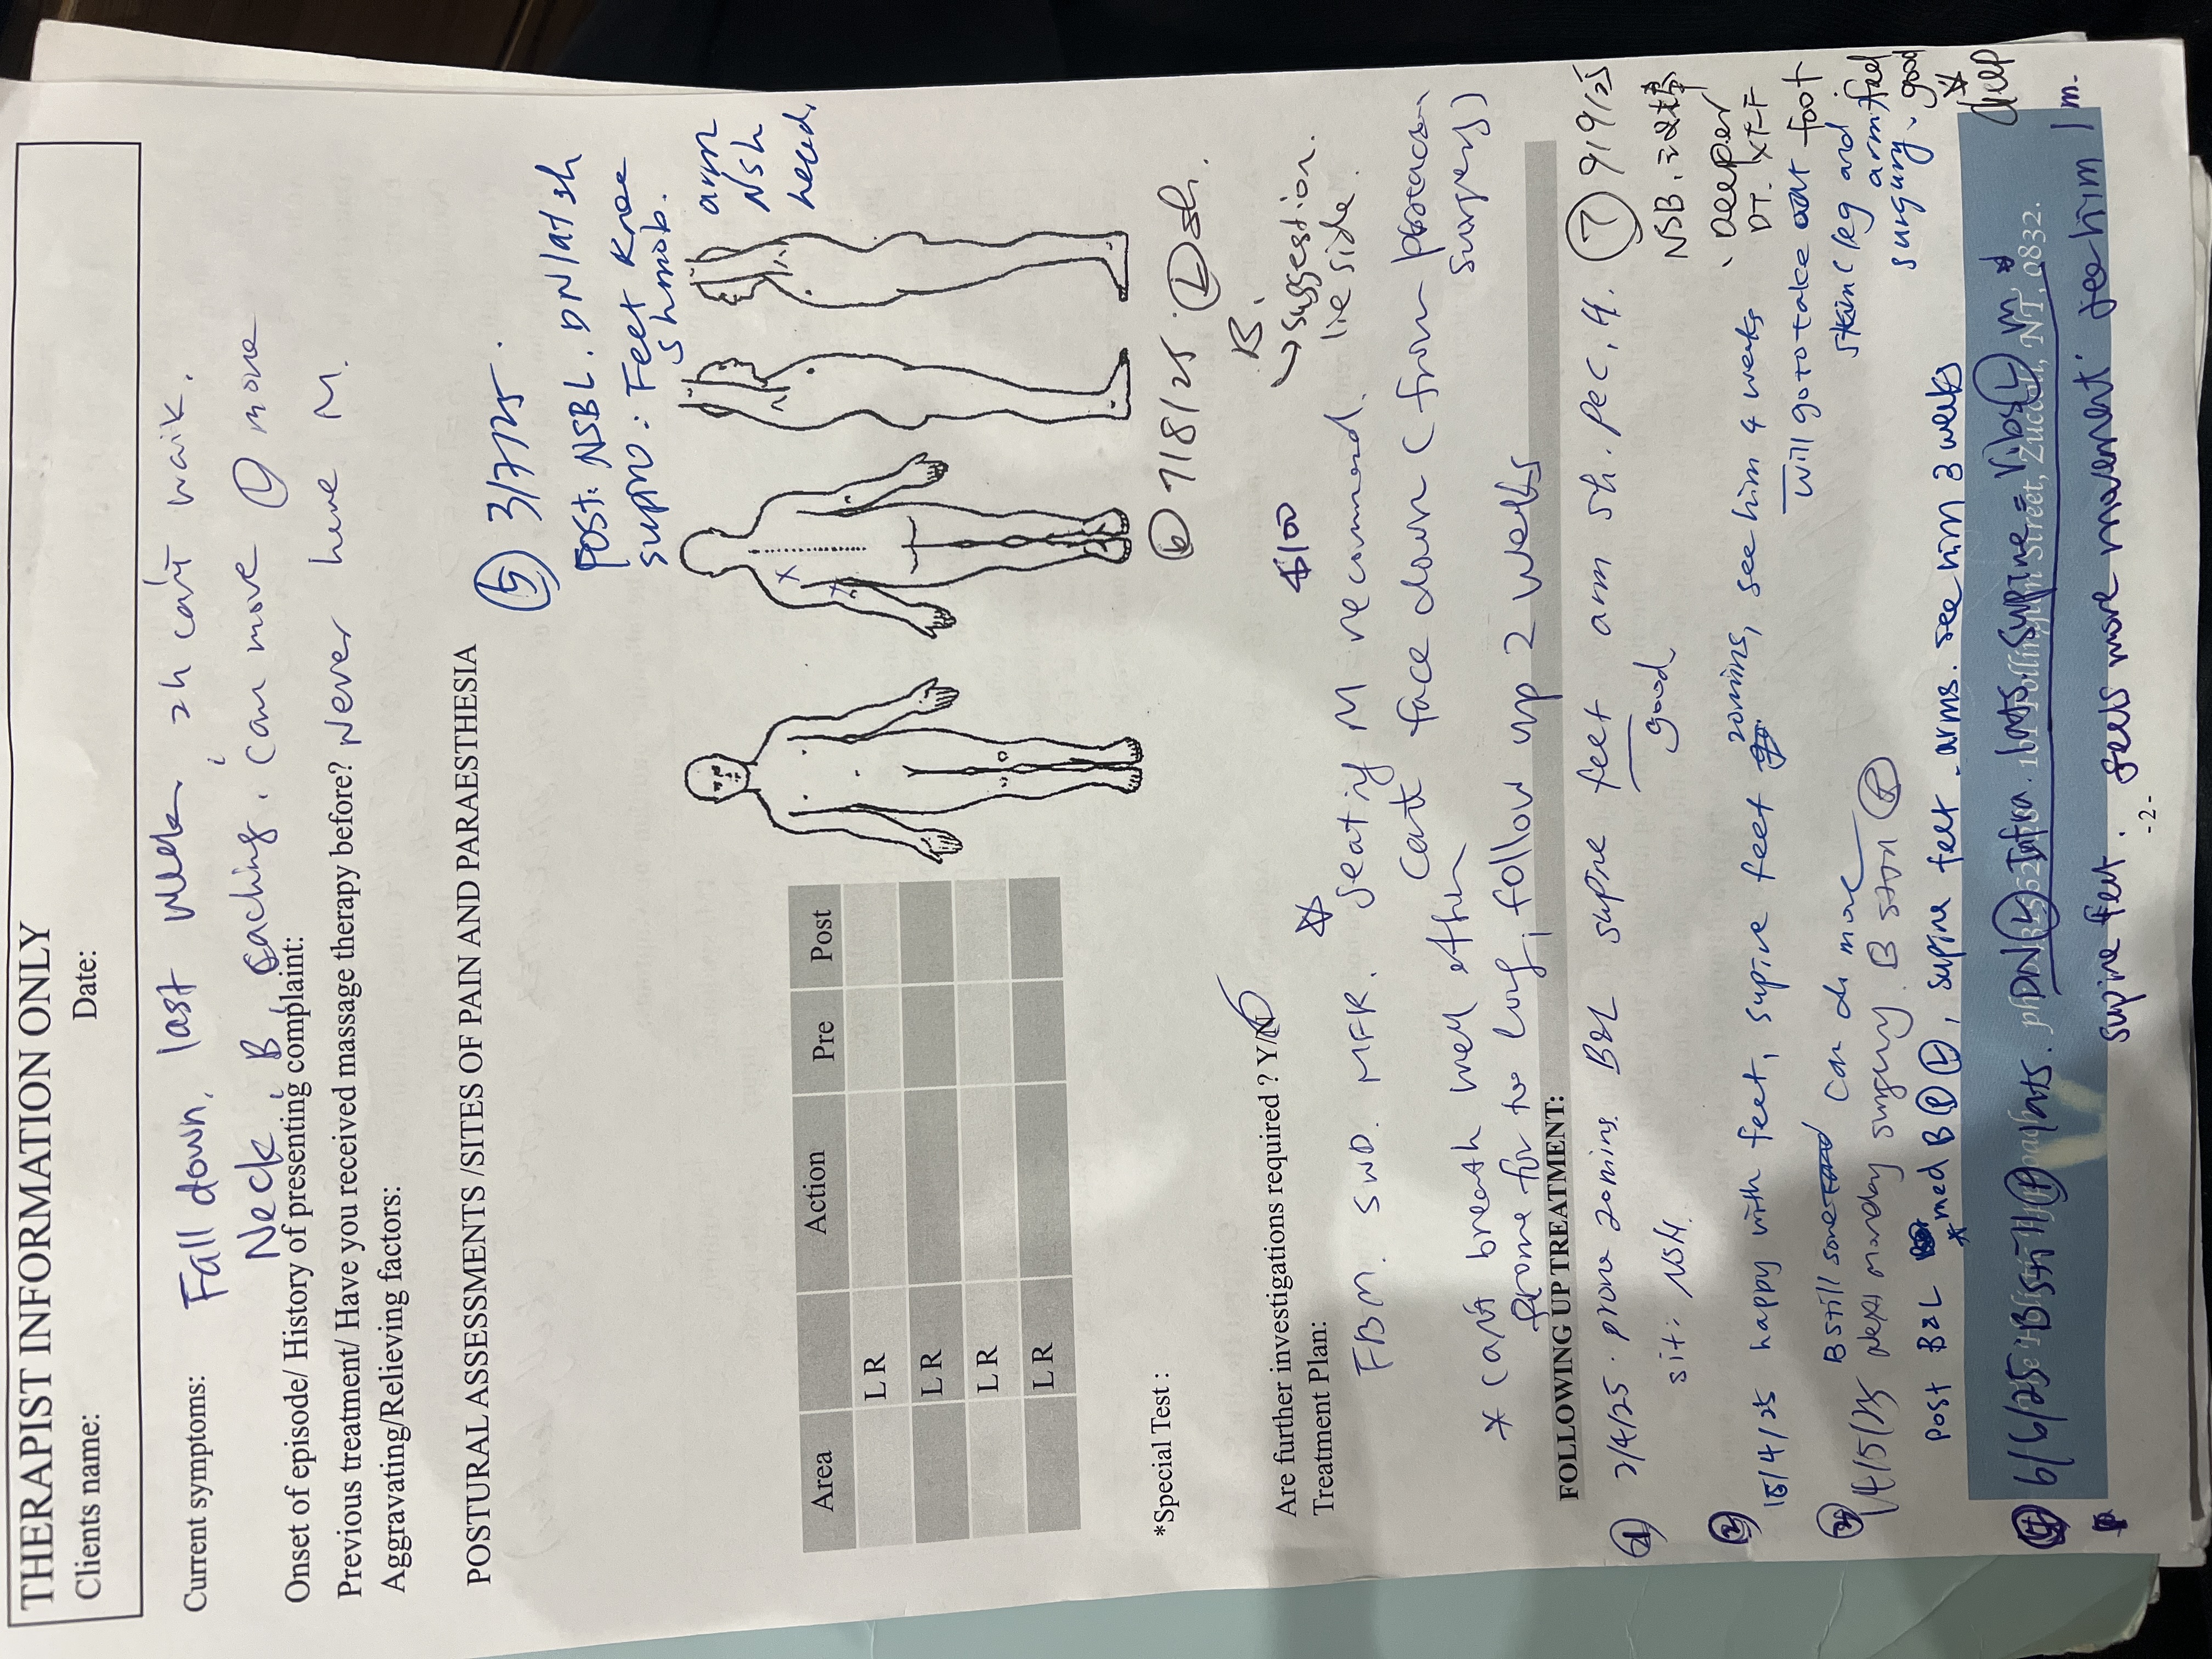 THERAPIST INFORMATION ONLY
Clients name: Date:
Current symptoms: Fall down, last week, 2h can't walk.
Neck, B, aching, can move L more
Onset of episode/ History of presenting complaint:
Previous treatment/ Have you received massage therapy before? Never have M.
Aggravating/Relieving factors:
POSTURAL ASSESSMENTS /SITES OF PAIN AND PARAESTHESIA
5 3/7/25.
Post: NSBL. DN lat sh
supine: Feet Knee
sh mob.
arm
Nsh
head.
Area Action Pre Post
L R
L R
L R
L R
*Special Test :
6 7/8/25. L sh.
B.
→ suggestion.
lie side.
$100
Are further investigations required ? Y/N
Treatment Plan:
FBM. SWD. MFR. Seating M recommend.
Can't face down (from
surgery)
* Can't breath well when
prone for too long, follow up 2 weeks
FOLLOWING UP TREATMENT:
1 2/4/25. prone 20mins. B&L supine feet arm sh. pec, H.
sit: NSH. good
2 15/4/25 happy with feet, supine feet 20mins, see him 4 weeks
B still some can do more
3 14/5/25 next monday surgery. B still R
Post B&L * med B R L, supine feet, arms. see him 3 weeks
4 6/6/25 B still R lats. DN L infra. lats. supine = ribs L m
supine feet. feels more movement. see him 1 m.
7 9/9/25
NSB,
Deeper
DT. XTF
will go to take out foot
skin (leg and arm feel
surgery. good
deep
Street, Zuccoli, NT, 0832.
-2-